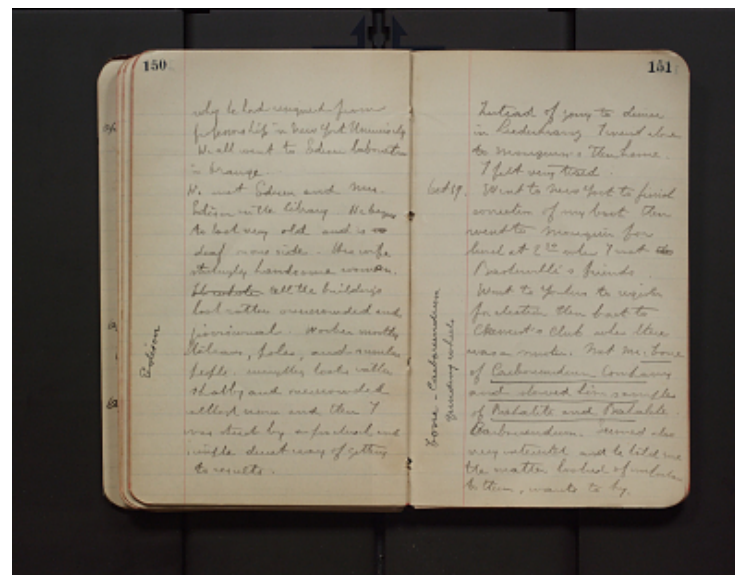 150
why he had resigned from
professorship in New York University
We all went to Edison laboratory
in Orange.
We met Edison and Mrs.
Edison in the library. He begins
to look very old and is
deaf on one side. His wife
strikingly handsome woman.
All the buildings
look rather overcrowded and
provisional. Worker mostly
Italians, poles, and similar
people. everything looks rather
shabby and overcrowded
altho now and then I
was struck by a practical and
simple direct way of getting
to results.
Edison
151
Instead of going to dinner
in I went alone
to Mouquin's then home.
I felt very tired.
Oct 19. Went to New York to finish
correction of my book then
went to Mouquin for
lunch at 2 when I met
Baskerville's friends.
Went to Yonkers to register
for election then back to
Chemist's Club where there
was a meeting. Met Mr. Tone
of Carborundum Company
and showed him samples
of Bakalite and Bakalite
Carborundum. Seemed also
very interested and he told me
the matter looked of importance
to them, wants to try.
Tone - Carborundum
grinding wheels